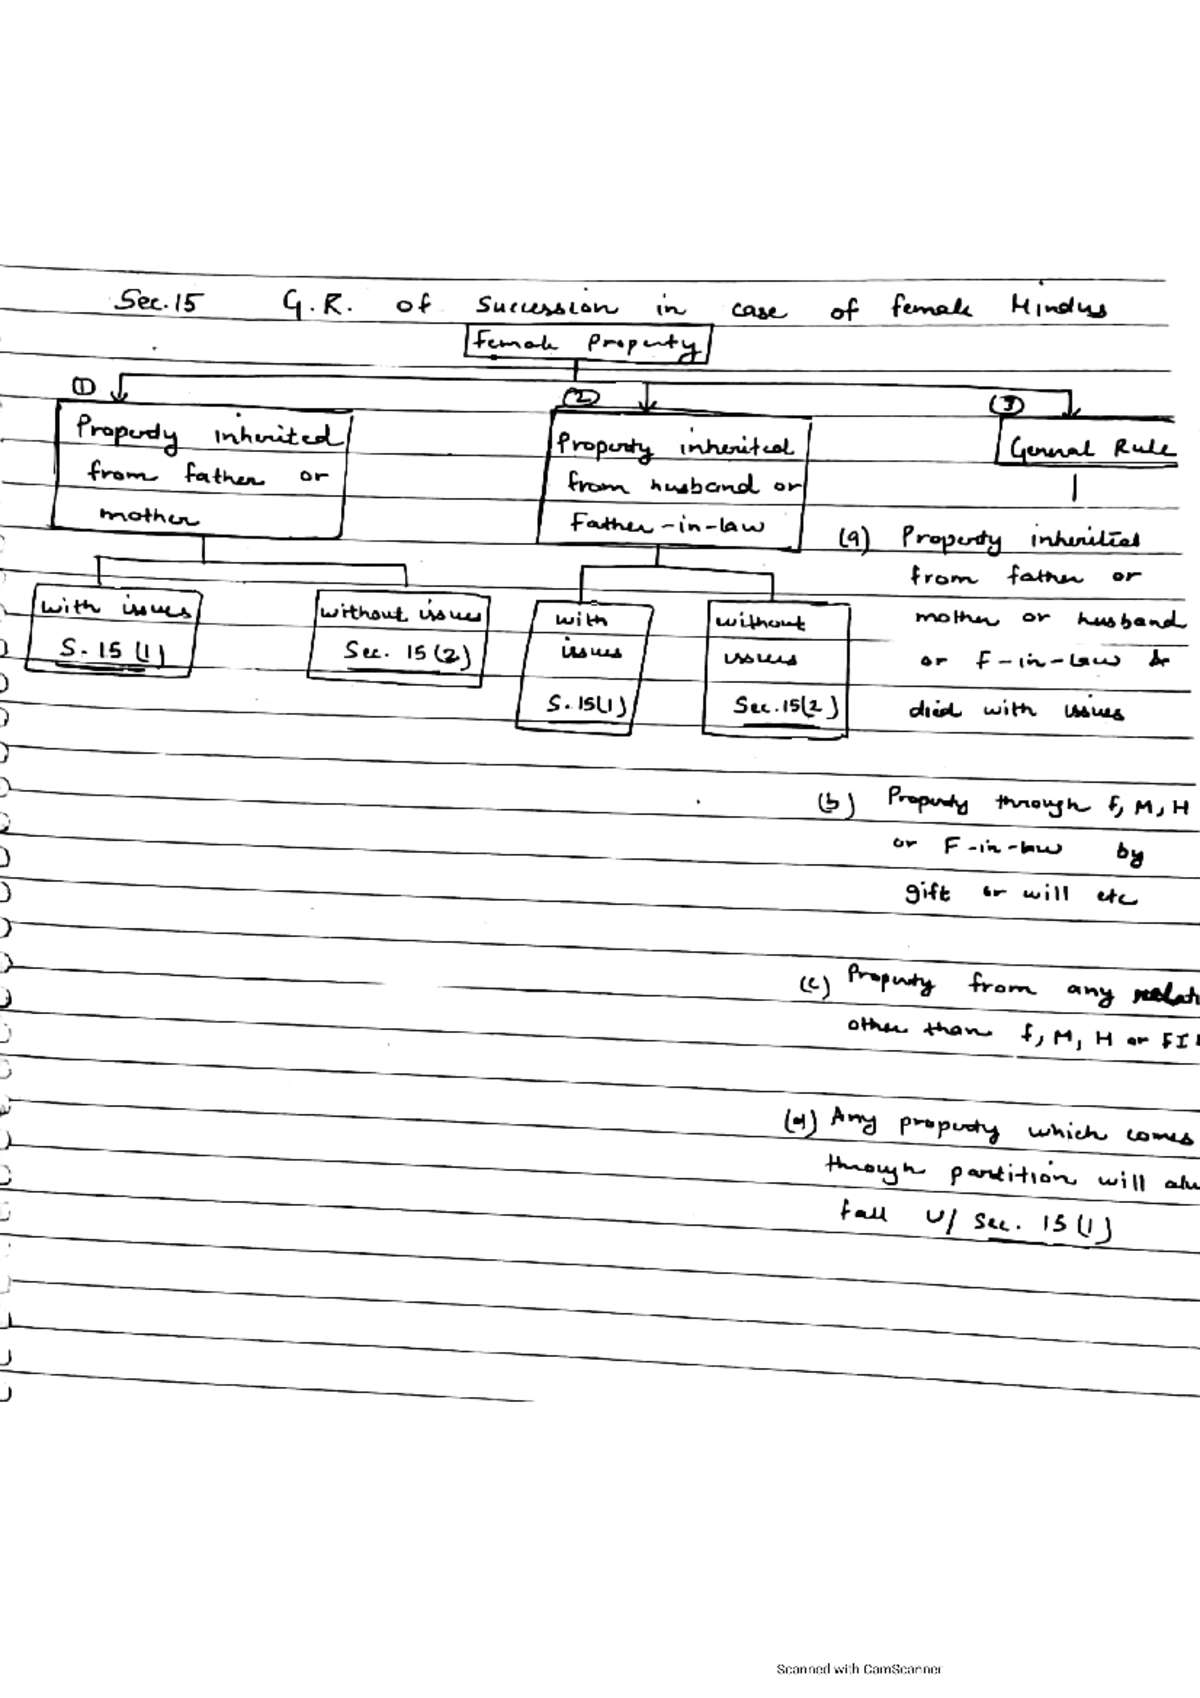 Sec. 15 G.R. of Succession in case of female Hindus
Female Property
① ② ③
Property inherited
from father or
mother
Property inherited
from husband or
Father-in-law
General Rule
with issues
S. 15 (1)
without issues
Sec. 15(2)
with
issues
S. 15(1)
without
issues
Sec. 15(2)
(a) Property inherited
from father or
mother or husband
or F-in-law &
died with issues
(b) Property through F, M, H
or F-in-law by
gift or will etc
(c) Property from any
other than F, M, H or
(d) Any property which comes
through partition will
fall U/ Sec. 15(1)
Scanned with CamScanner